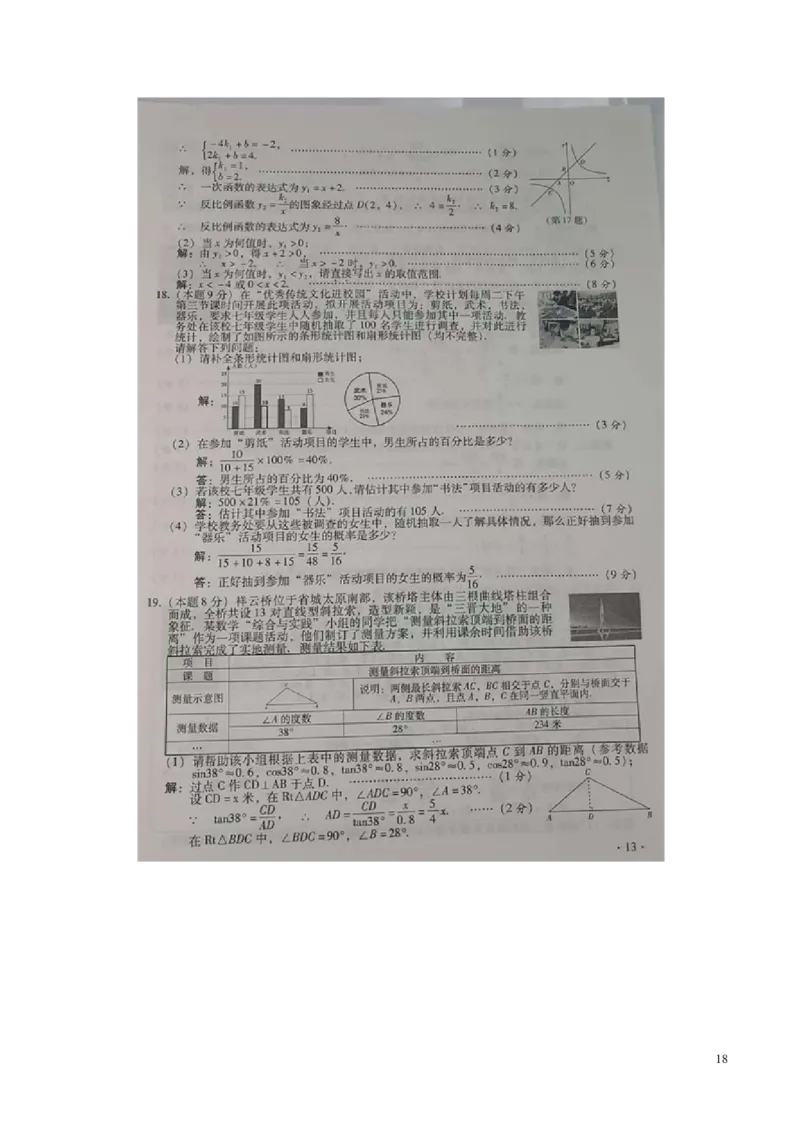 ∴ {-4k₁+b=-2, 2k₁+b=4. ……(1分)
解,得{k₁=1, b=2. ……(2分)
∴ 一次函数的表达式为y₁=x+2. ……(3分)
∵ 反比例函数y₂=k₂/x的图象经过点D(2,4), ∴ 4=k₂/2. ∴ k₂=8.
(第17题)
∴ 反比例函数的表达式为y₂=8/x. ……(4分)
(2)当x为何值时,y₁>0;
解:由y₁>0,得x+2>0, ……(5分)
∴ x>-2. ∴ 当x>-2时,y₁>0. ……(6分)
(3)当x为何值时,y₁<y₂,请直接写出x的取值范围.
解:x<-4或0<x<2. ……(8分)
18.(本题9分)在“优秀传统文化进校园”活动中,学校计划每周二下午
第三节课时间开展此项活动,拟开展活动项目为:剪纸,武术,书法,
器乐,要求七年级学生人人参加,并且每人只能参加其中一项活动.教
务处在该校七年级学生中随机抽取了100名学生进行调查,并对此进行
统计,绘制了如图所示的条形统计图和扇形统计图(均不完整).
请解答下列问题:
(1)请补全条形统计图和扇形统计图;
人数(人)
男生
女生
解:
武术 30%
器乐 24%
剪纸 武术 书法 器乐 项目
……(3分)
(2)在参加“剪纸”活动项目的学生中,男生所占的百分比是多少?
解:10/(10+15)×100%=40%.
答:男生所占的百分比为40%. ……(5分)
(3)若该校七年级学生共有500人,请估计其中参加“书法”项目活动的有多少人?
解:500×21%=105(人).
答:估计其中参加“书法”项目活动的有105人. ……(7分)
(4)学校教务处要从这些被调查的女生中,随机抽取一人了解具体情况,那么正好抽到参加
“器乐”活动项目的女生的概率是多少?
解:15/(15+10+8+15)=15/48=5/16.
答:正好抽到参加“器乐”活动项目的女生的概率为5/16. ……(9分)
19.(本题8分)祥云桥位于省城太原南部,该桥塔主体由三根曲线塔柱组合
而成,全桥共设13对直线型斜拉索,造型新颖,是“三晋大地”的一种
象征.某数学“综合与实践”小组的同学把“测量斜拉索顶端到桥面的距
离”作为一项课题活动,他们制订了测量方案,并利用课余时间借助该桥
斜拉索完成了实地测量.测量结果如下表.
项目 内容
课题 测量斜拉索顶端到桥面的距离
测量示意图 说明:两侧最长斜拉索AC,BC相交于点C,分别与桥面交于
A,B两点,且点A,B,C在同一竖直平面内.
测量数据 ∠A的度数 ∠B的度数 AB的长度
38° 28° 234米
… …
(1)请帮助该小组根据上表中的测量数据,求斜拉索顶端点C到AB的距离(参考数据
sin38°≈0.6,cos38°≈0.8,tan38°≈0.8,sin28°≈0.5,cos28°≈0.9,tan28°≈0.5);
解:过点C作CD⊥AB于点D. ……(1分)
设CD=x米,在Rt△ADC中,∠ADC=90°,∠A=38°.
∵ tan38°=CD/AD, ∴ AD=CD/tan38°=x/0.8=5/4x. ……(2分)
C
A D B
在Rt△BDC中,∠BDC=90°,∠B=28°.
·13·
18